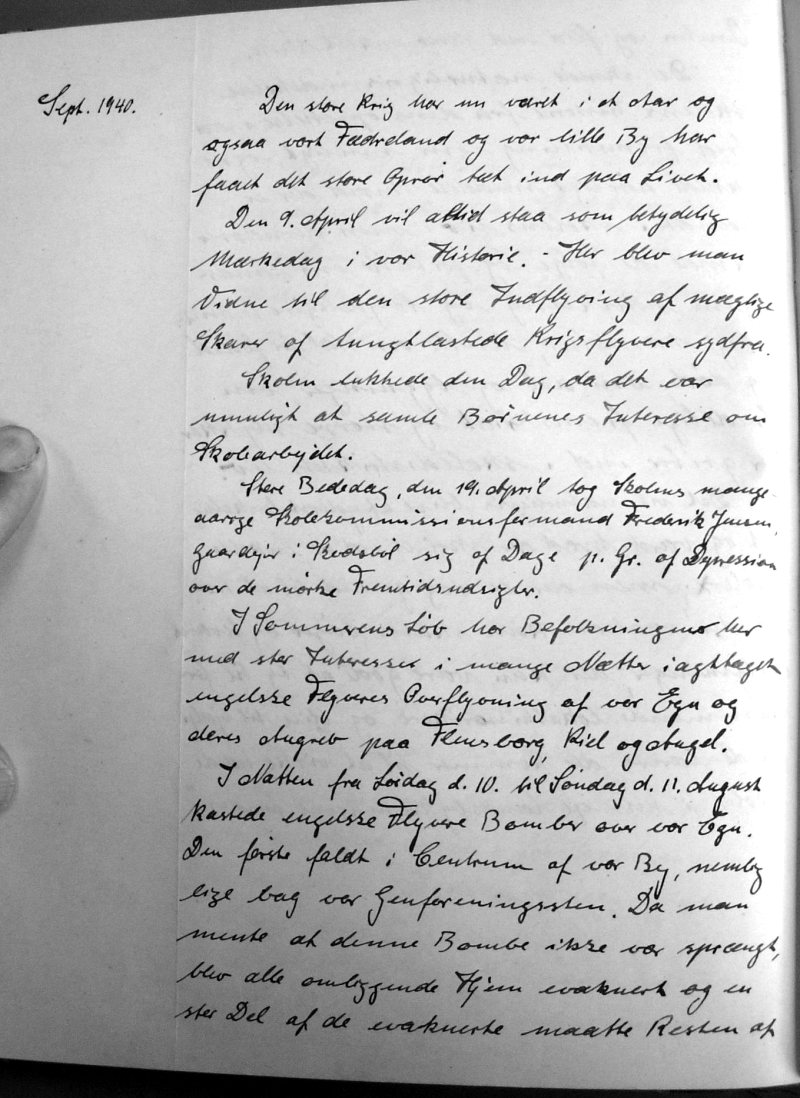 Sept. 1940.
Den store Krig har nu været i et Aar og
ogsaa vort Fædreland og vor lille By har
faaet det store Oprør tæt ind paa Livet.
Den 9. April vil altid staa som betydelig
Mærkedag i vor Historie. - Her blev man
Vidne til den store Indflyvning af mægtige
Skarer af tungtlastede Krigsflyvere sydfra.
Skolen lukkede den Dag, da det var
umuligt at samle Børnenes Interesse om
Skolearbejdet.
Store Bededag, den 19. April tog Skolens mange-
aarige Skolekommissionsformand Frederik Jensen,
Gaardejer i Skodsbøl sig af Dage p. Gr. af Depression
over de mørke Fremtidsudsigter.
I Sommerens Løb har Befolkningen her
med stor Interesse i mange Nætter iagttaget
engelske Flyveres Overflyvning af vor Egn og
deres Angreb paa Flensborg, Kiel og Angel.
I Natten fra Lørdag d. 10. til Søndag d. 11. August
kastede engelske Flyvere Bomber over vor Egn.
Den første faldt i Centrum af vor By, nemlig
lige bag vor Genforeningssten. Da man
mente at denne Bombe ikke var sprængt,
blev alle omliggende Hjem evakuert og en
stor Del af de evakuerte maatte Resten af